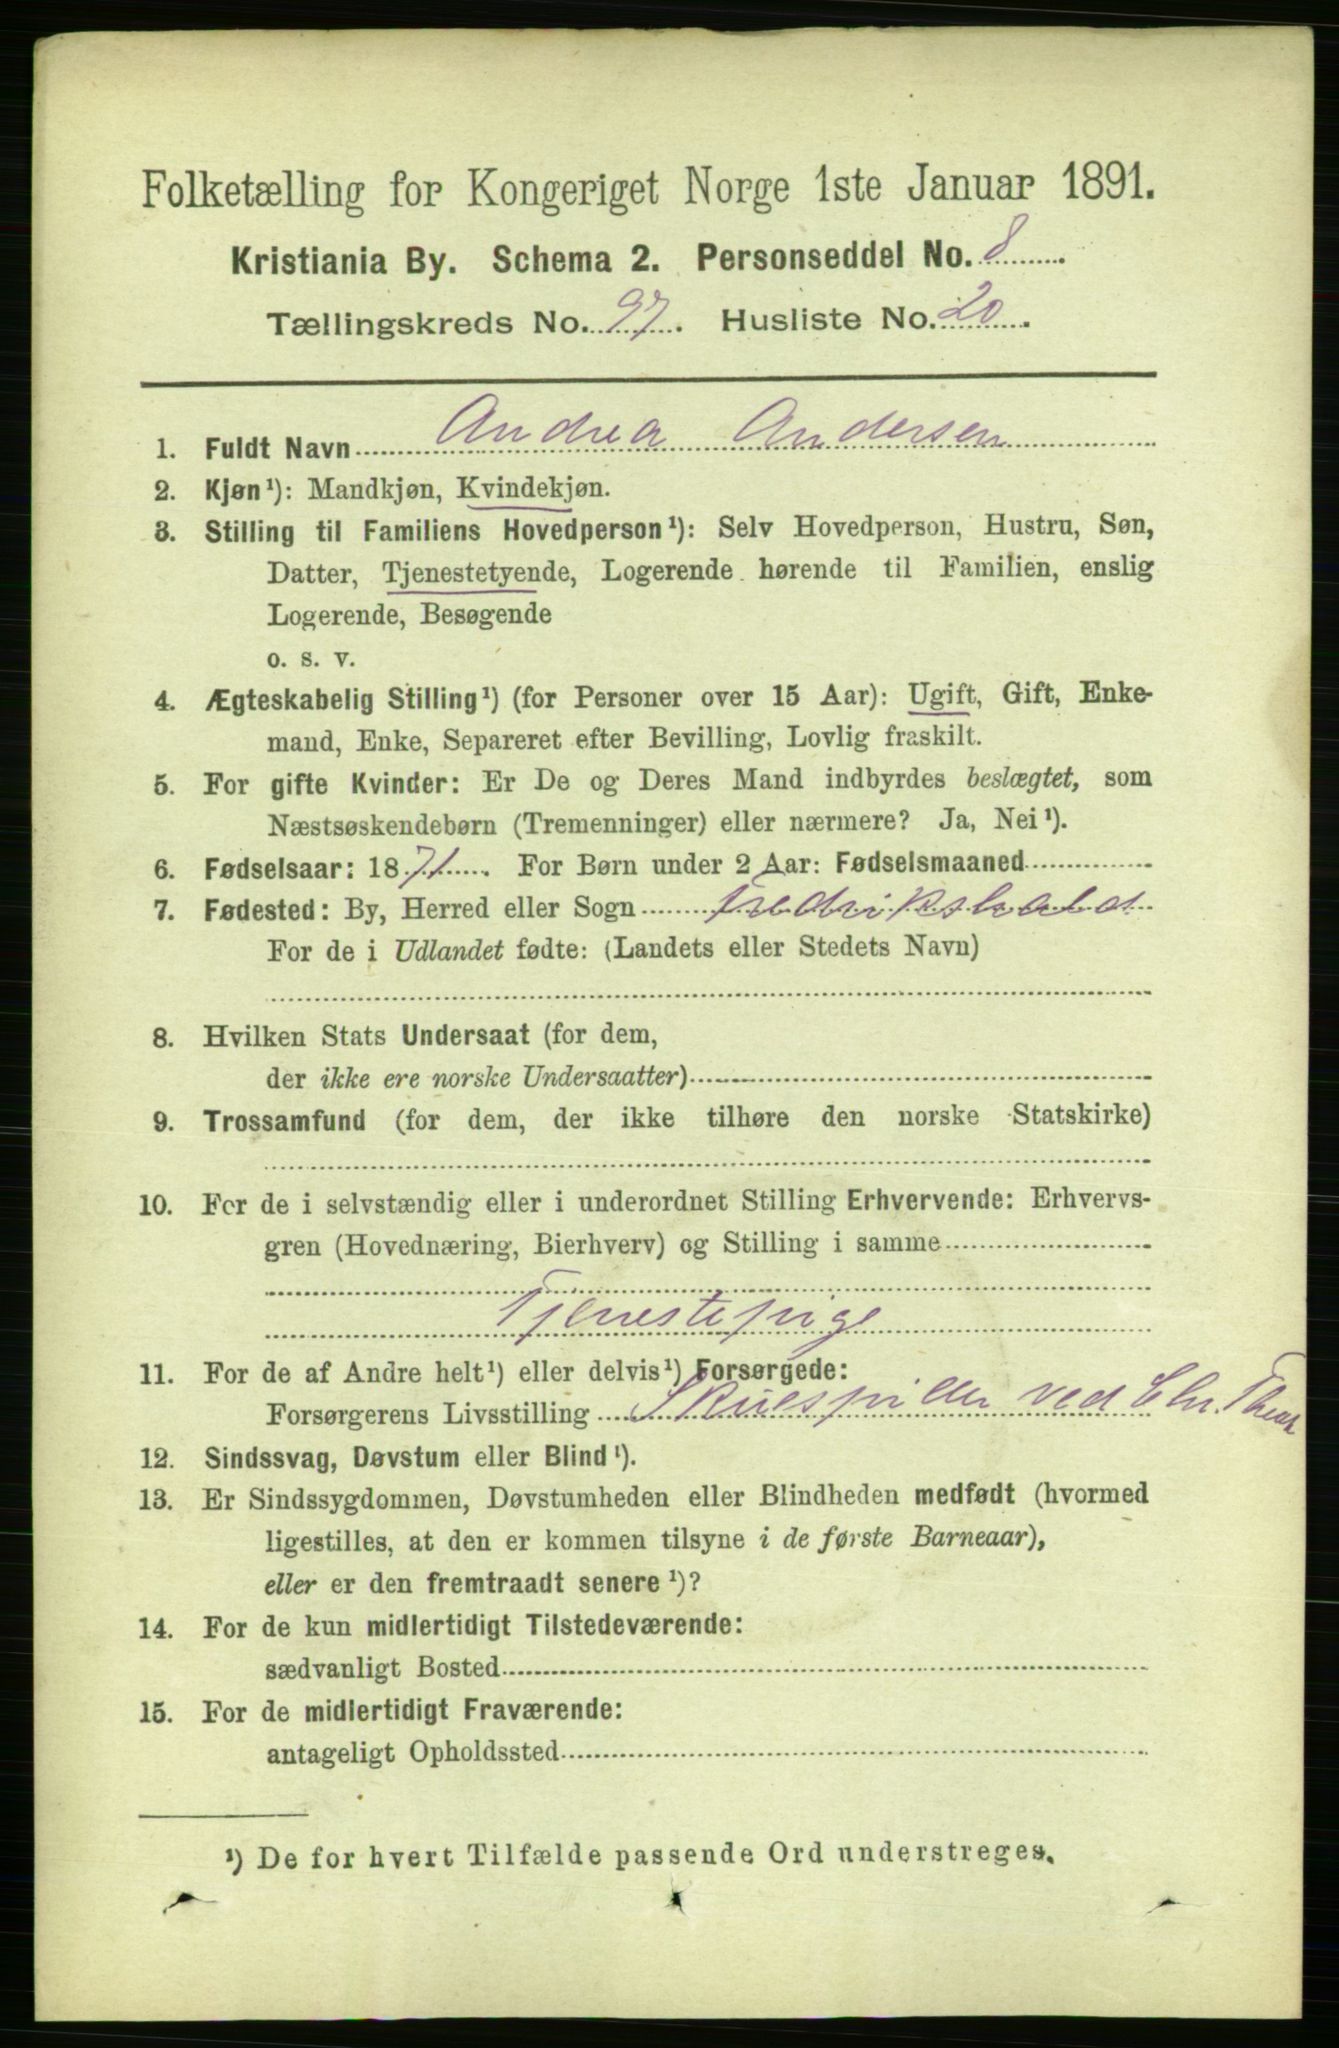 Folketælling for Kongeriget Norge 1ste Januar 1891.
Kristiania By. Schema 2. Personseddel No. 8.
Tællingskreds No. 97. Husliste No. 20.
1. Fuldt Navn Andrea Andersen
2. Kjøn¹): Mandkjøn, Kvindekjøn.
3. Stilling til Familiens Hovedperson¹): Selv Hovedperson, Hustru, Søn,
Datter, Tjenestetyende, Logerende hørende til Familien, enslig
Logerende, Besøgende
o. s. v.
4. Ægteskabelig Stilling¹) (for Personer over 15 Aar): Ugift, Gift, Enke-
mand, Enke, Separeret efter Bevilling, Lovlig fraskilt.
5. For gifte Kvinder: Er De og Deres Mand indbyrdes beslægtet, som
Næstsøskendebørn (Tremenninger) eller nærmere? Ja, Nei¹).
6. Fødselsaar: 1871. For Børn under 2 Aar: Fødselsmaaned
7. Fødested: By, Herred eller Sogn Fredrikshald
For de i Udlandet fødte: (Landets eller Stedets Navn)
8. Hvilken Stats Undersaat (for dem,
der ikke ere norske Undersaatter)
9. Trossamfund (for dem, der ikke tilhøre den norske Statskirke)
10. For de i selvstændig eller i underordnet Stilling Erhvervende: Erhvervs-
gren (Hovednæring, Bierhverv) og Stilling i samme
Tjenestepige
11. For de af Andre helt¹) eller delvis¹) Forsørgede:
Forsørgerens Livsstilling Skuespiller ved Chr. Theat
12. Sindssvag, Døvstum eller Blind¹).
13. Er Sindssygdommen, Døvstumheden eller Blindheden medfødt (hvormed
ligestilles, at den er kommen tilsyne i de første Barneaar),
eller er den fremtraadt senere¹)?
14. For de kun midlertidigt Tilstedeværende:
sædvanligt Bosted
15. For de midlertidigt Fraværende:
antageligt Opholdssted
¹) De for hvert Tilfælde passende Ord understreges.